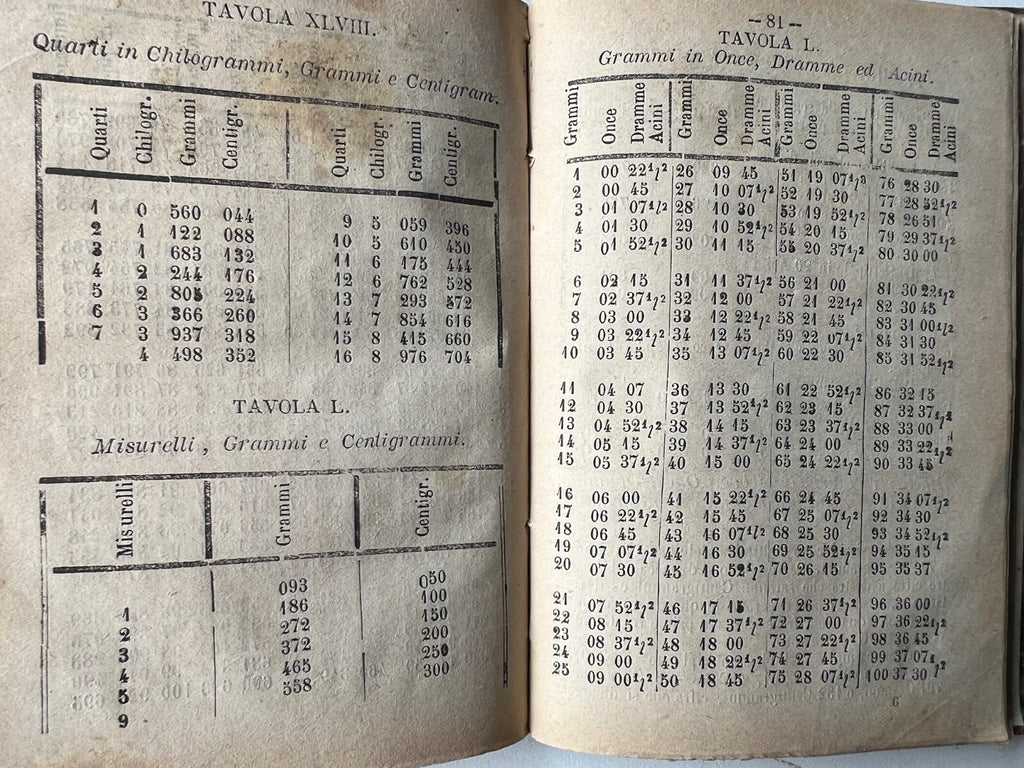 TAVOLA XLVIII.
Quarti in Chilogrammi, Grammi e Centigram.
Quarti Chilogr. Grammi Centigr. Quarti Chilogr. Grammi Centigr.
1 0 560 044 9 5 059 396
2 1 122 088 10 5 610 450
3 1 683 132 11 6 175 444
4 2 244 176 12 6 762 528
5 2 805 224 13 7 293 572
6 3 366 260 14 7 854 616
7 3 937 318 15 8 415 660
4 498 352 16 8 976 704
TAVOLA L.
Misurelli, Grammi e Centigrammi.
Misurelli Grammi Centigr.
1 093 050
2 186 100
3 272 150
4 372 200
5 465 250
9 558 300
— 81 —
TAVOLA L.
Grammi in Once, Dramme ed Acini.
Grammi Once Dramme Acini Grammi Once Dramme Acini Grammi Once Dramme Acini Grammi Once Dramme Acini
1 00 22 1/2 26 09 45 51 19 07 1/3 76 28 30
2 00 45 27 10 07 1/2 52 19 30 77 28 52 1/2
3 01 07 1/2 28 10 30 53 19 52 1/2 78 26 51
4 01 30 29 10 52 1/2 54 20 15 79 29 37 1/2
5 01 52 1/2 30 11 15 55 20 37 1/2 80 30 00
6 02 15 31 11 37 1/2 56 21 00 81 30 22 1/2
7 02 37 1/2 32 12 00 57 21 22 1/2 82 30 45
8 03 00 33 12 22 1/2 58 21 45 83 31 00 1/2
9 03 22 1/2 34 12 45 59 22 07 1/2 84 31 30
10 03 45 35 13 07 1/2 60 22 30 85 31 52 1/2
11 04 07 36 13 30 61 22 52 1/2 86 32 15
12 04 30 37 13 52 1/2 62 23 15 87 32 37 1/2
13 04 52 1/2 38 14 15 63 23 37 1/2 88 33 00
14 05 15 39 14 37 1/2 64 24 00 89 33 22 1/2
15 05 37 1/2 40 15 00 65 24 22 1/2 90 33 45
16 06 00 41 15 22 1/2 66 24 45 91 34 07 1/2
17 06 22 1/2 42 15 45 67 25 07 1/2 92 34 30
18 06 45 43 16 07 1/2 68 25 30 93 34 52 1/2
19 07 07 1/2 44 16 30 69 25 52 1/2 94 35 15
20 07 30 45 16 52 1/2 70 26 15 95 35 37
21 07 52 1/2 46 17 15 71 26 37 1/2 96 36 00
22 08 15 47 17 37 1/2 72 27 00 97 36 22 1/2
23 08 37 1/2 48 18 00 73 27 22 1/2 98 36 45
24 09 00 49 18 22 1/2 74 27 45 99 37 07 1/2
25 09 00 1/2 50 18 45 75 28 07 1/2 100 37 30
6